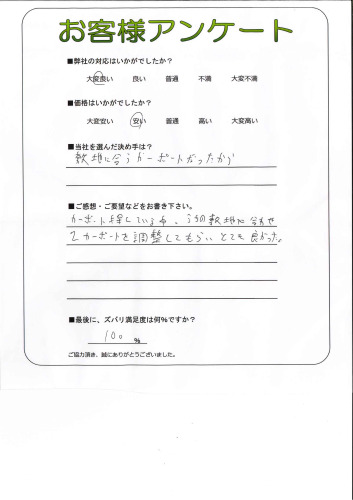 お客様アンケート
■弊社の対応はいかがでしたか？
大変良い 良い 普通 不満 大変不満
■価格はいかがでしたか？
大変安い 安い 普通 高い 大変高い
■当社を選んだ決め手は？
敷地に合うカーポートだったから
■ご感想・ご要望などをお書き下さい。
カーポート探している中、うちの敷地に合わせ
てカーポートを調整してもらい とても良かった。
■最後に、ズバリ満足度は何％ですか？
100 %
ご協力頂き、誠にありがとうございました。